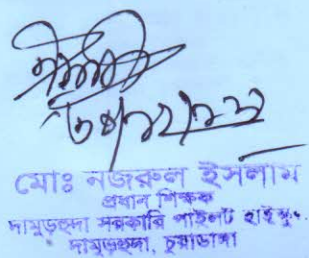 মোঃ নজরুল ইসলাম
প্রধান শিক্ষক
দামুড়হুদা সরকারি পাইলট হাইস্কু.
দামুড়হুদা, চুয়াডাঙ্গা